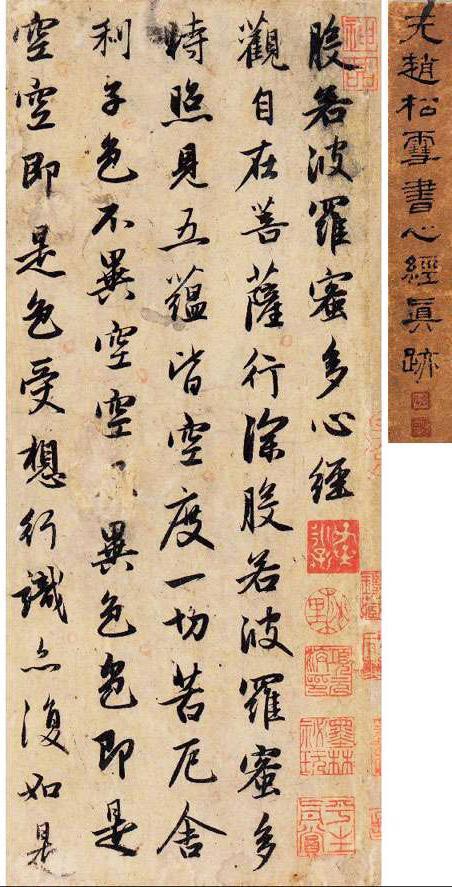 元趙松雪書心經眞跡
般若波羅蜜多心經
觀自在菩薩行深般若波羅蜜多
時照見五蘊皆空度一切苦厄舍
利子色不異空空不異色色即是
空空即是色受想行識亦復如是
神品
墨林祕玩